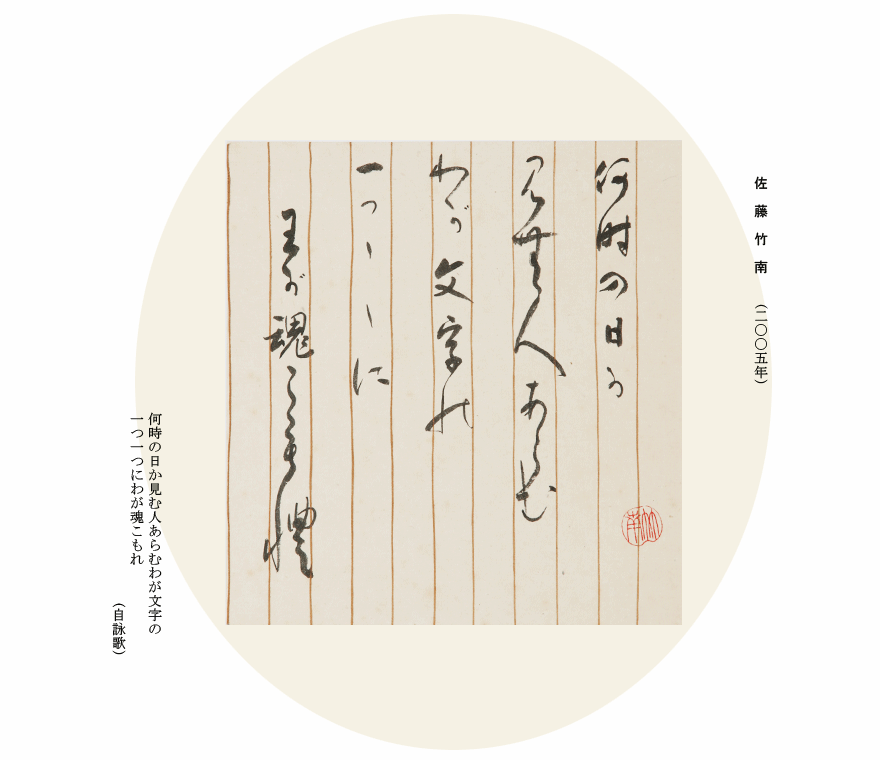 佐藤竹南 (二〇〇五年)
何時の日か
見無人あらむ
わが文字の
一つ一つに
王が魂
こも禮
竹南
何時の日か見む人あらむわが文字の
一つ一つにわが魂こもれ
(自詠歌)